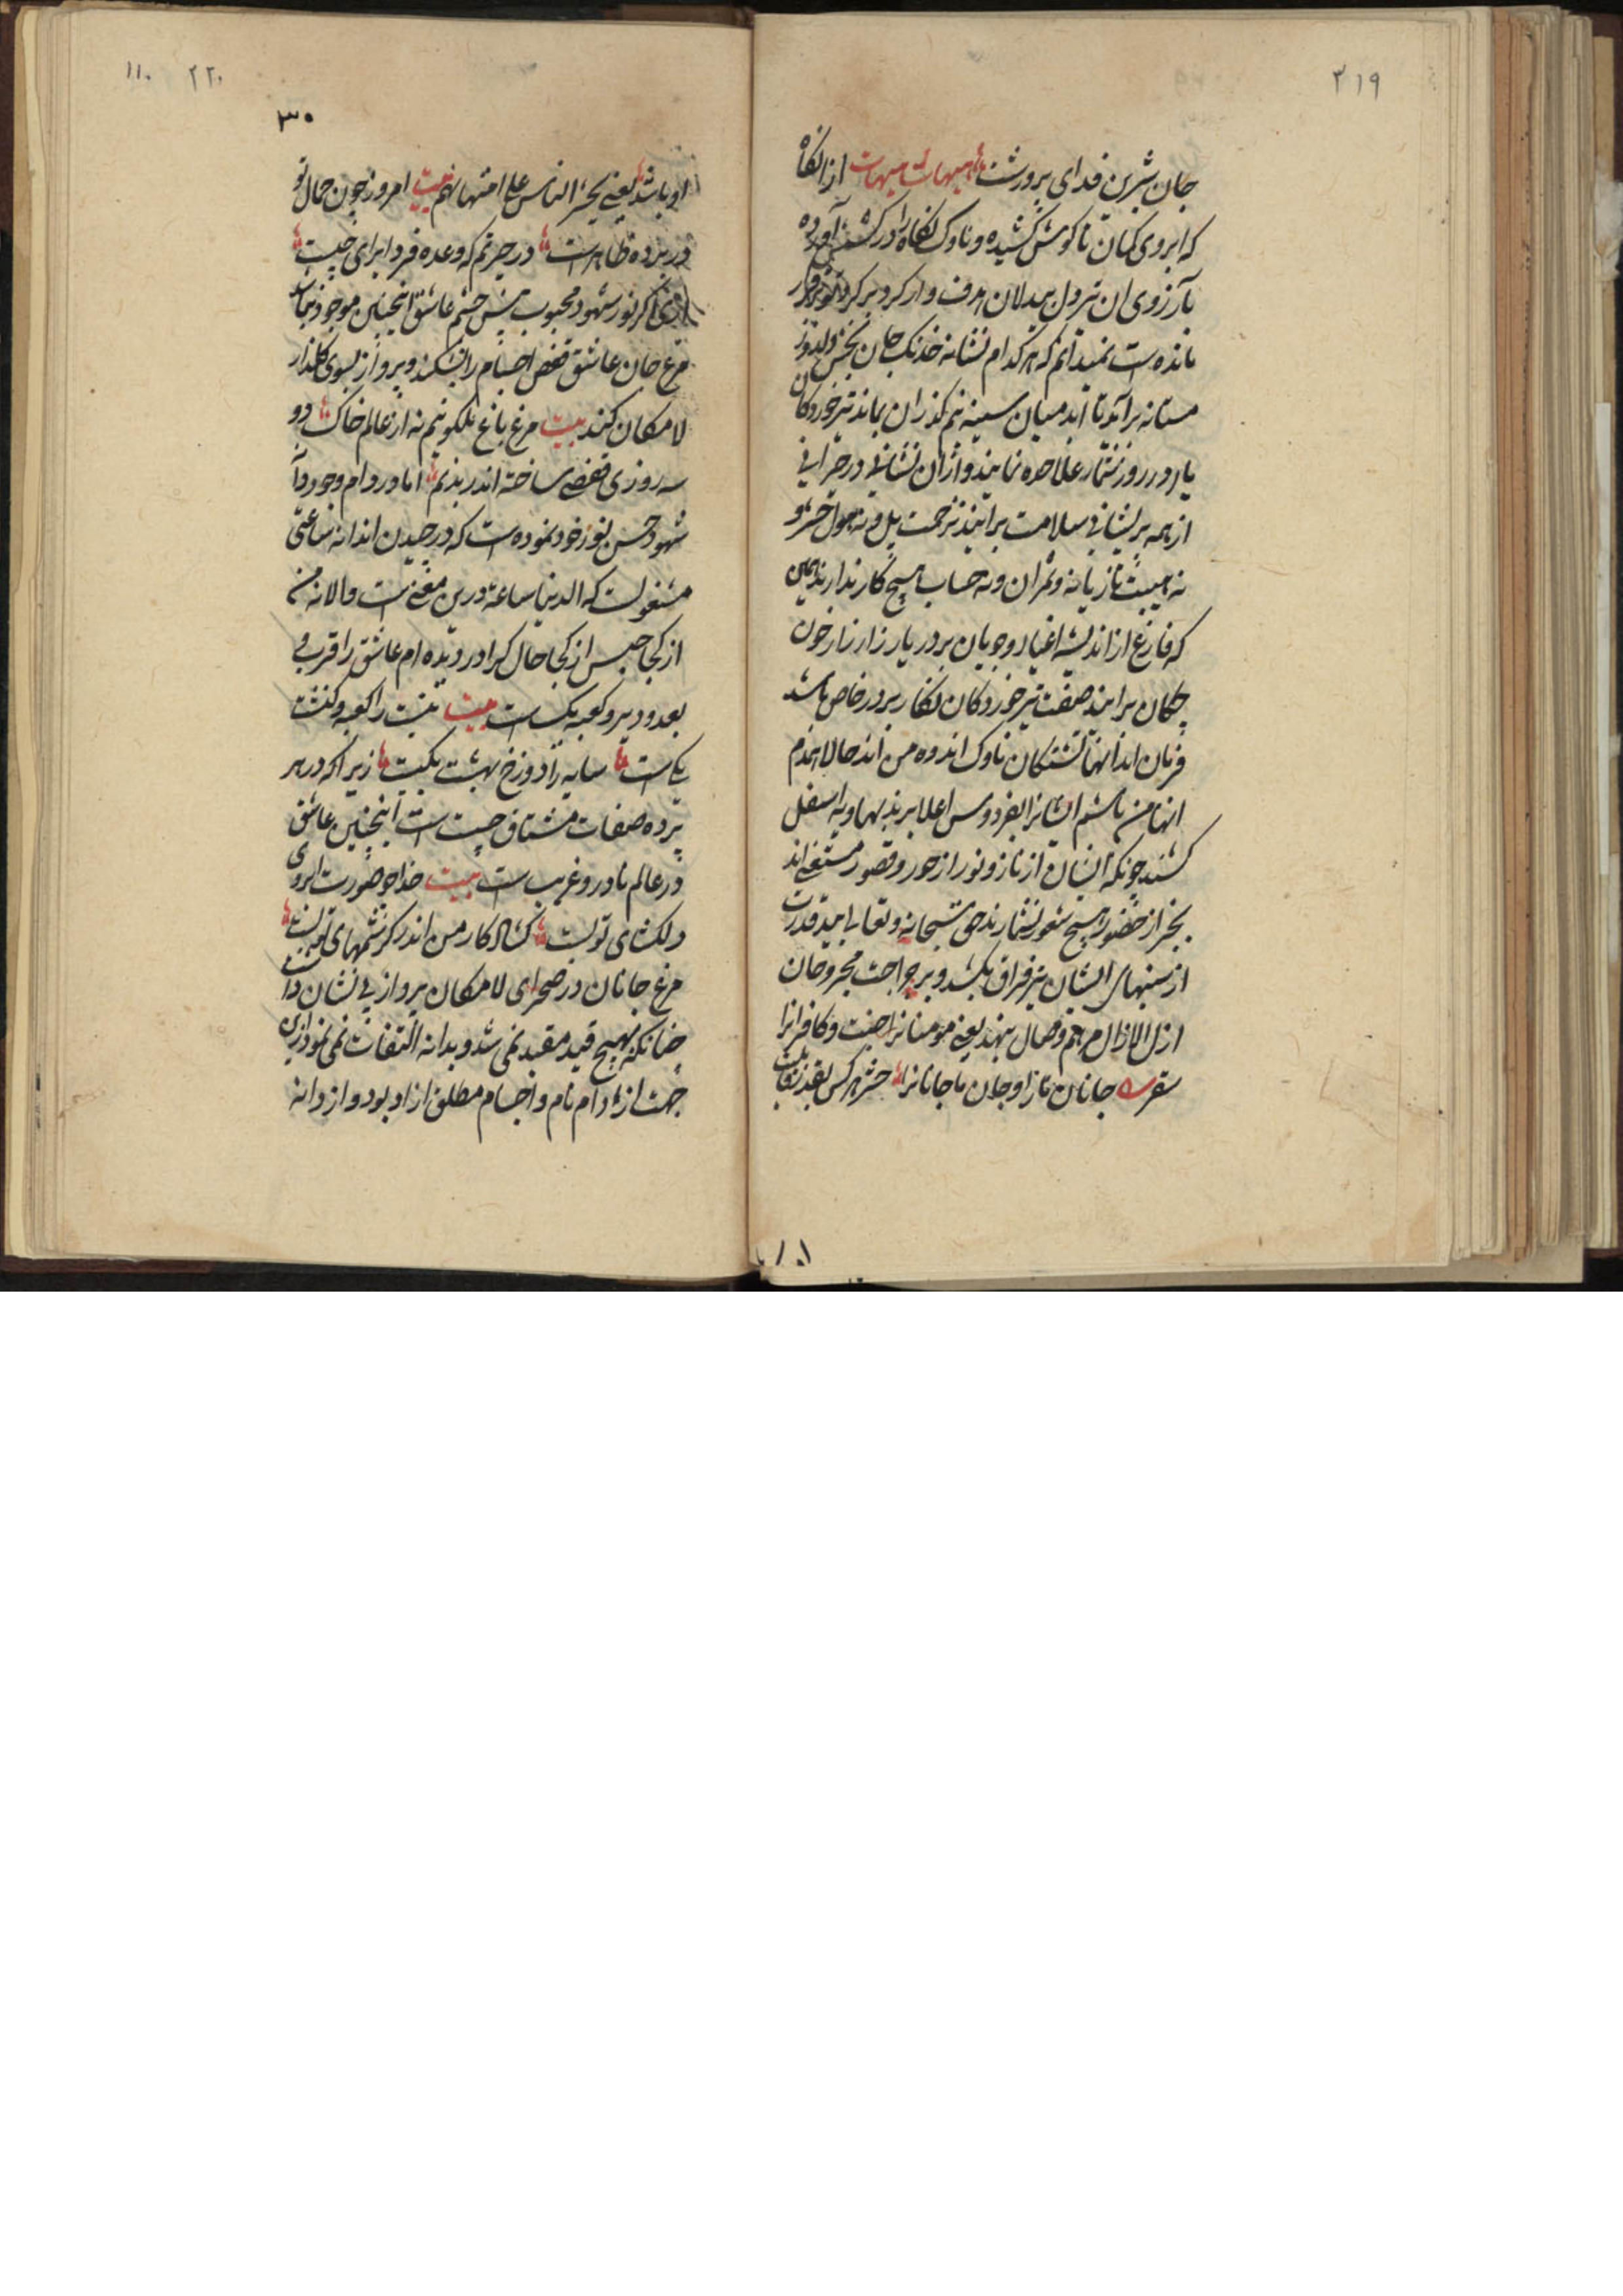 ۳۱۹
جان شیرین فدای پرورشت هیهات هیهات از نگاه
که ابروی کمان تا کوش کشیده و ناوک نگاه را در کشش آورده
بآرزوی ان تیر دل بیدلان هدف وار کرد بر کرد
مانده است نمیدانم که هر کدام نشانه خدنک جان بخش دلدوز
مستانه برآید تا اند میان سینه نم گذران بماند تیر خوردکان
یار در روز شمار علاحده نمایند و از ان نشانی در حیرانی
از همه پریشانی سلامت برایند نه زحمت پل و نه هول حشر و
نه هیبت تازیانه و نه حساب هیچ کار ندارند همین
که فارغ از اندیشه اغیار و جویان بر در یار زار زار خون
چکان برایند صفت تیر خوردکان نگار بر در خاص باشد
فرمان اید انها کشتکان ناوک اندوه من اند حالا همدم
انها من باشم ایشانرا بفردوس اعلا برند بهاویه اسفل
کشند چونکه ایشان از ناز و نور از حور و قصور مستغنی اند
بجز از حضور هیچ سور نشمارند حق سبحانه و تعالی بید قدرت
از سینهای ایشان تیر فراق بکشد و بر جراحت مجروحان
ازل الازال مرهم وصال بنهد یعنی مومنانرا جنت و کافرانرا
سقر جانان تا زا و جان با جانانرا حشر هر کس بقدر
۲۲۰ ۱۱۰
۳۰
او باشد یعنی یحشر الناس علی امتهاتهم بیت امروز چون جمال تو
در پرده ظاهر است در حیرتم که وعده فردا برای چیست
اگر نور شهود محبوب پیش چشم عاشق اینچنین موجود نباشد
مرغ جان عاشق قفص اجسام را بشکند و پرواز بسوی کلذار
لامکان کند بیت مرغ باغ ملکوتیم نه از عالم خاک دو
سه روزی قفصی ساخته اند بدنم اما در دام وجود دانه
شهود حسن نور خود نموده است که در چیدن اندانه ساعتی
مشغولست که الدنیا ساعة درین معنی است والا نه من
از کجا حبس از کجا حال کرا در دیده ام عاشق را قرب و
بعد و دیر و کعبه یکست بیت نیت را کعبه و کنشت
یکی است سایه را دوزخ بهشت یکیست زیرا که در هر
پرده صفات مشتاق چیست است اینچنین عاشق
در عالم نادر و غریب است بیت خدا چو صورت ابروی
دلکشای تو بست کشاد کار من اندر کرشمهای تو بست
مرغ جانان در صحرای لامکان پرواز بی نشان داشت
چنانکه بهیچ قید مقید نمی شد و بدانه التفات نمی نمود ازین
جهت از دام نام و اجسام مطلق ازاد بود و از دانه